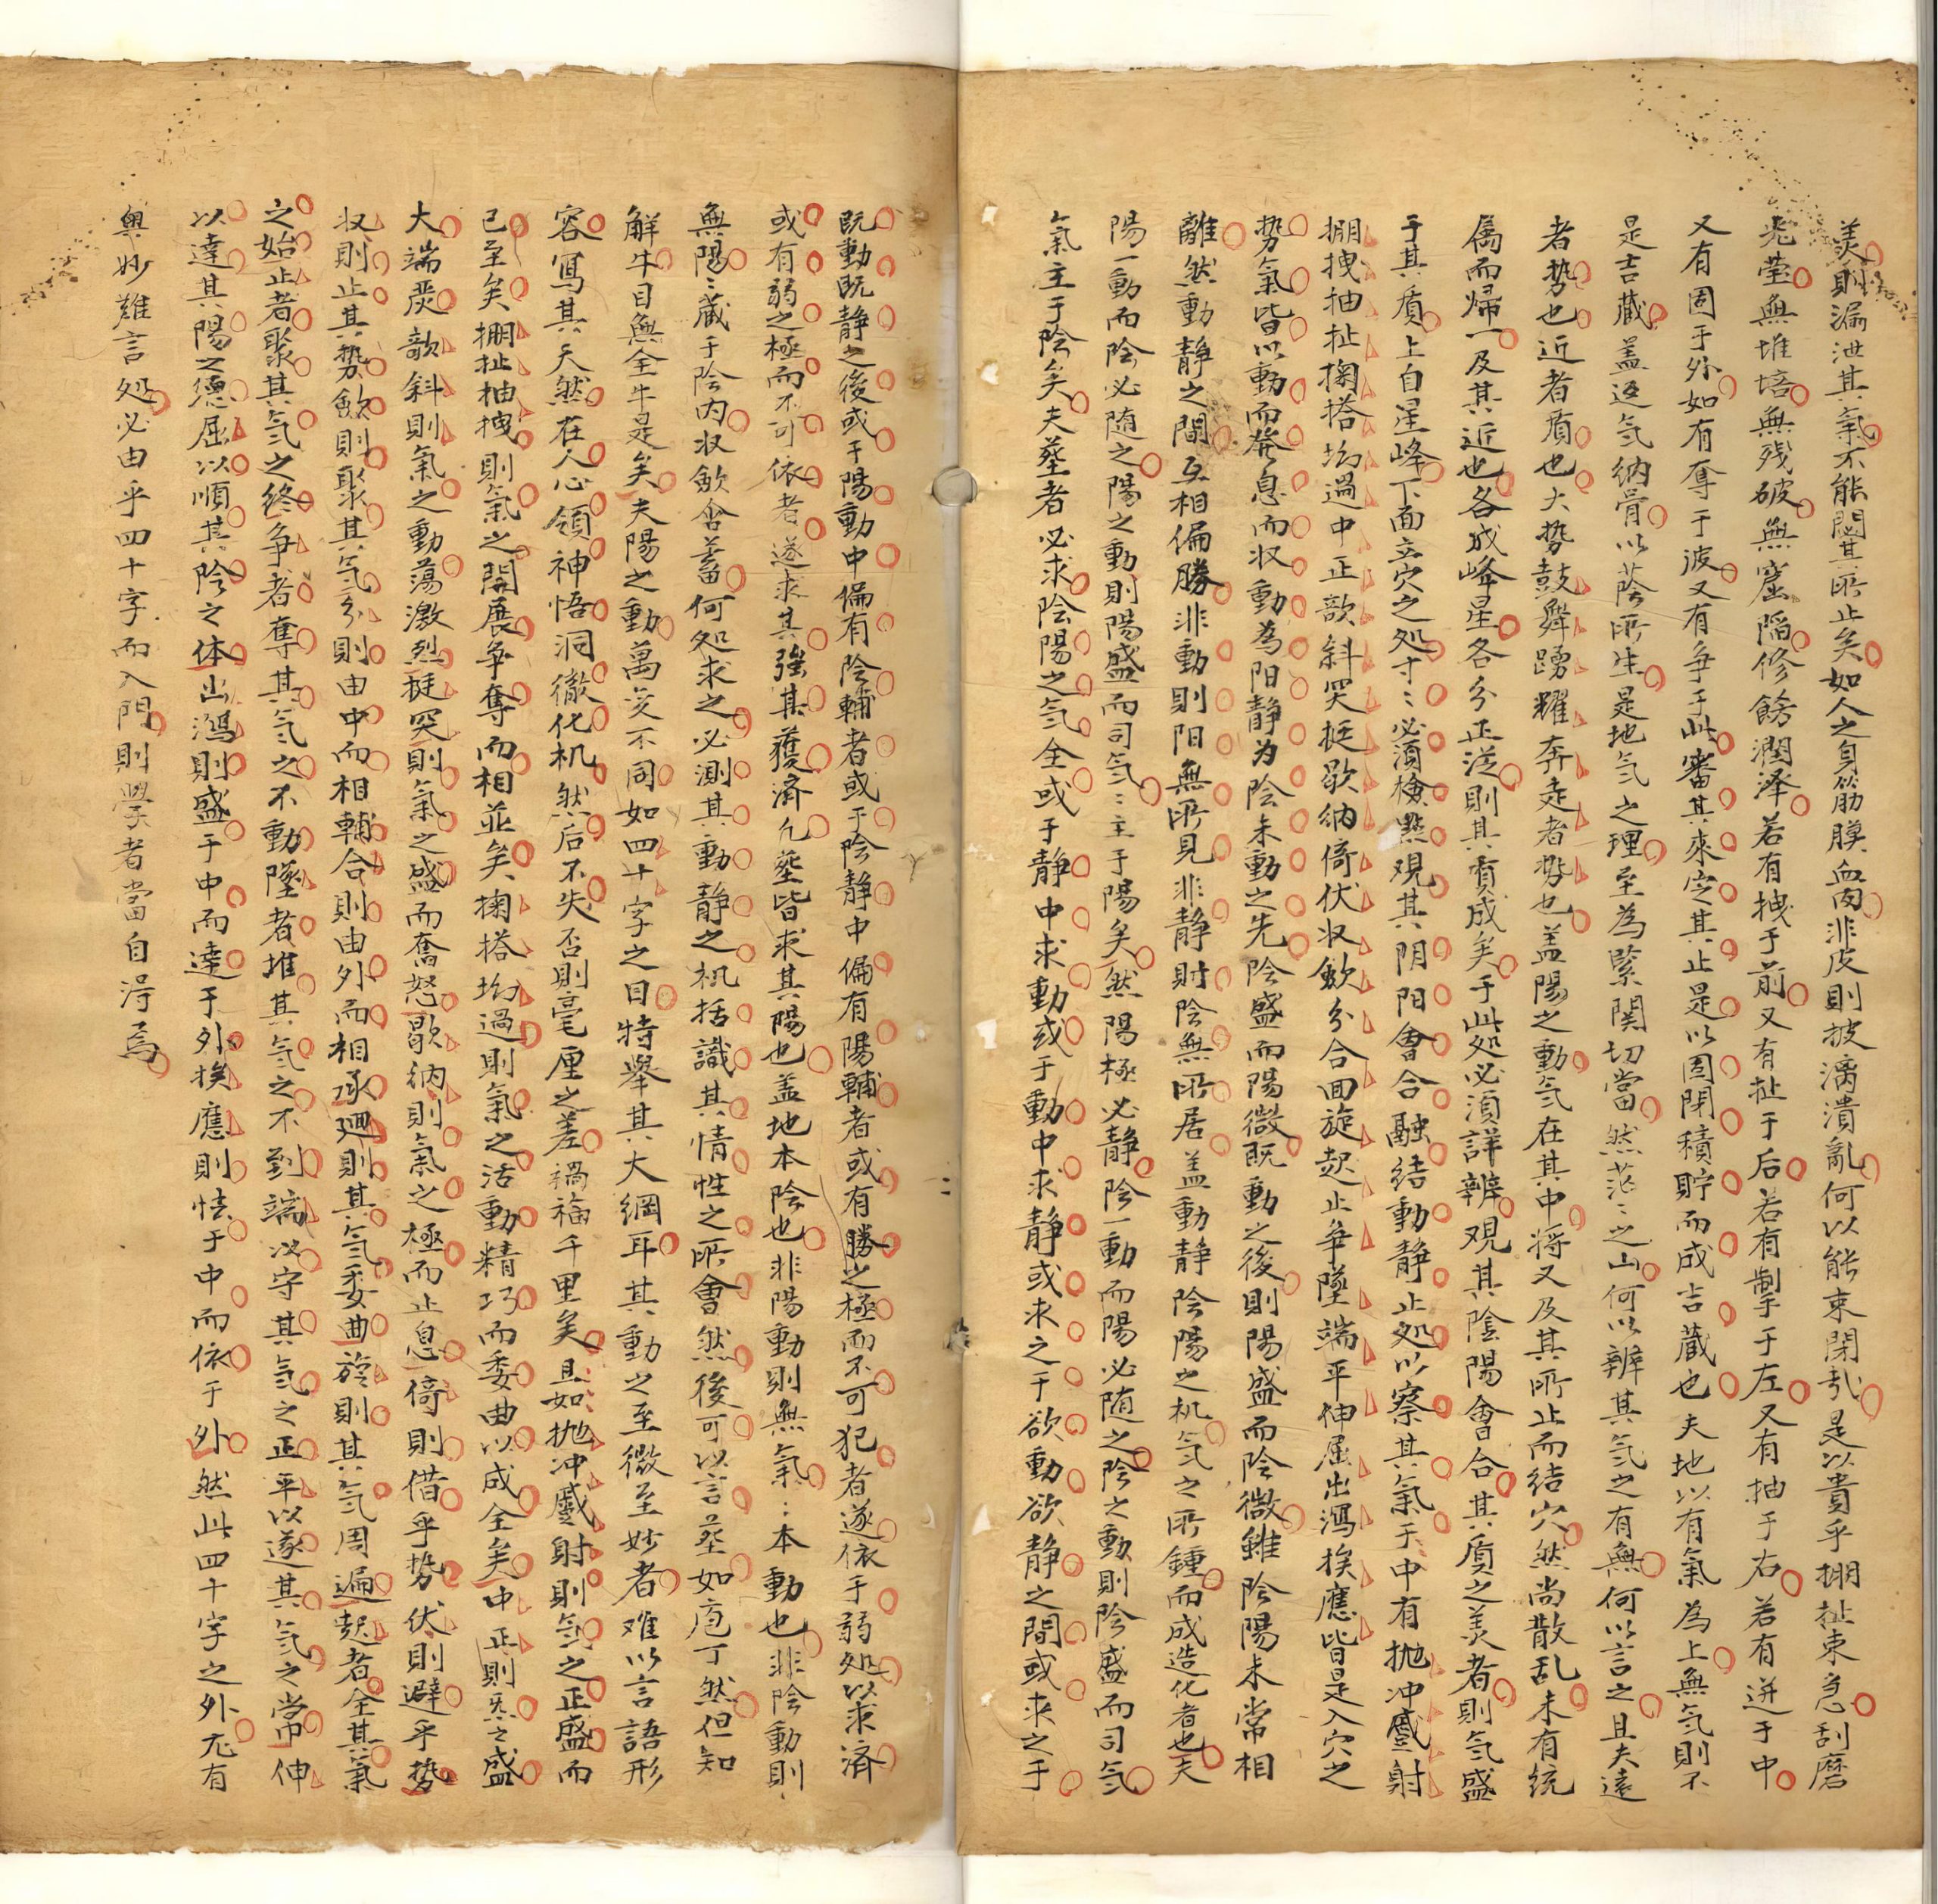 羙則漏泄其氣不能閟其所止矣如人之身筋膜血肉非皮則披漓潰亂何以能束閉哉是以貴乎掤扯束急刮磨
光莹無堆培無残破無窟陷修餙潤泽若有拽于前又有扯于后若有掣于左又有抽于右若有迸于中
又有固于外如有奪于波又有争于此審其來定其止是以固閉積貯而成吉藏也夫地以有氣為上無気則不
是吉藏盖返気納骨以蔭所生是地気之理至為緊関切當然茫〻之山何以辨其気之有無何以言之且夫遠
者势也近者盾也大势鼓舞踴耀奔走者势也盖陽之動気在其中将又及其所止而结穴然尚散乱未有统
属而歸一及其近也各成峰星各分正淫則其質成矣于此処必湏詳辨观其陰陽會合其质之羙者則気盛
于其质上自星峰下面立穴之処寸〻必湏檢點观其阴阳會合融结動静止処以察其氣于中有抛冲戲射
掤拽抽扯掬搭拗過中正歆斜突挺歇纳倚伏収歛分合回旋起止争墜端平伸屈出瀉挨應皆是入穴之
势氣皆以動而發息而収動為阳静为陰未動之先陰盛而陽微既動之後則陽盛而陰微雖陰陽未常相
離然動静之間互相偏勝非動則阳無所見非静則陰無所居盖動静陰陽之机気之所鍾而成造化者也夫
陽一動而陰必随之陽之動則陽盛而司気〻主于陽矣然陽極必静陰一動而陽必随之陰之動則陰盛而司気
氣主于陰矣夫塟者必求陰陽之気全或于静中求動或于動中求静或求之于欲動欲静之間或求之于
既動既静之後或于陽動中偏有陰輔者或于陰静中偏有陽輔者或有勝之極而不可犯者遂依于弱処以求済
或有弱之極而不可依者遂求其強其獲済凢塟皆求其陽也盖地本陰也非陽動則無氣〻本動也非陰動則
無陽〻藏于陰内収歛含蓄何処求之必測其動静之机括識其情性之所會然後可以言塟如庖丁然但知
解牛目無全牛是矣夫陽之動萬変不同如四十字之目特舉其大綱耳其動之至微至妙者难以言語形
容寫其天然在人心領神悟洞徹化机然后不失否則毫厘之差禍福千里矣且如抛冲戲射則気之正盛而
已至矣掤扯抽拽則氣之開展争奪而相並矣掬搭拗過則氣之活動精巧而委曲以成全矣中正則炁之盛
大端莊歆斜則氣之動蕩激烈挺突則氣之盛而奮怒歇纳則氣之極而止息倚則借乎势伏則避乎势
収則止其势歛則聚其気分則由中而相輔合則由外而相承廻則其気委曲旋則其気周遍起者全其氣
之始止者聚其気之終争者奪其気之不動墜者推其気之不到端以守其気之正平以遂其気之常伸
以達其陽之德屈以順其陰之体出瀉則盛于中而達于外挨應則怯于中而依于外然此四十字之外尤有
奥妙難言処必由乎四十字而入門則學者當自淂焉